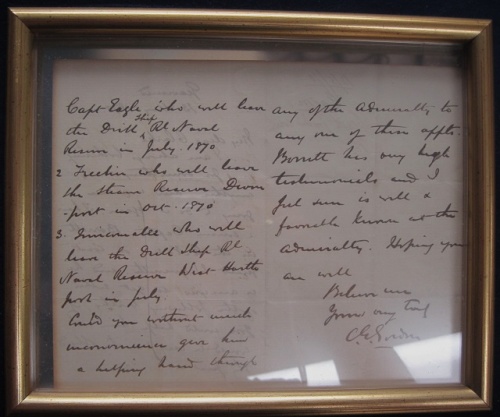 Capt Eagle who will leave
the Drill Ship Rl Naval
Reserve in July 1870
2 who will leave
the Steam Reserve Devon
-port in Oct. 1870
3. who will
leave the Drill Ship Rl
Naval Reserve West Hartle
pool in July.
Could you without much
inconvenience give him
a helping hand through
any of the Admiralty to
any one of these appts.
has very high
testimonials and I
feel sure is well &
favorable known at the
Admiralty. Hoping you
are well
Believe me
Yours very truly
C. G. Gordon